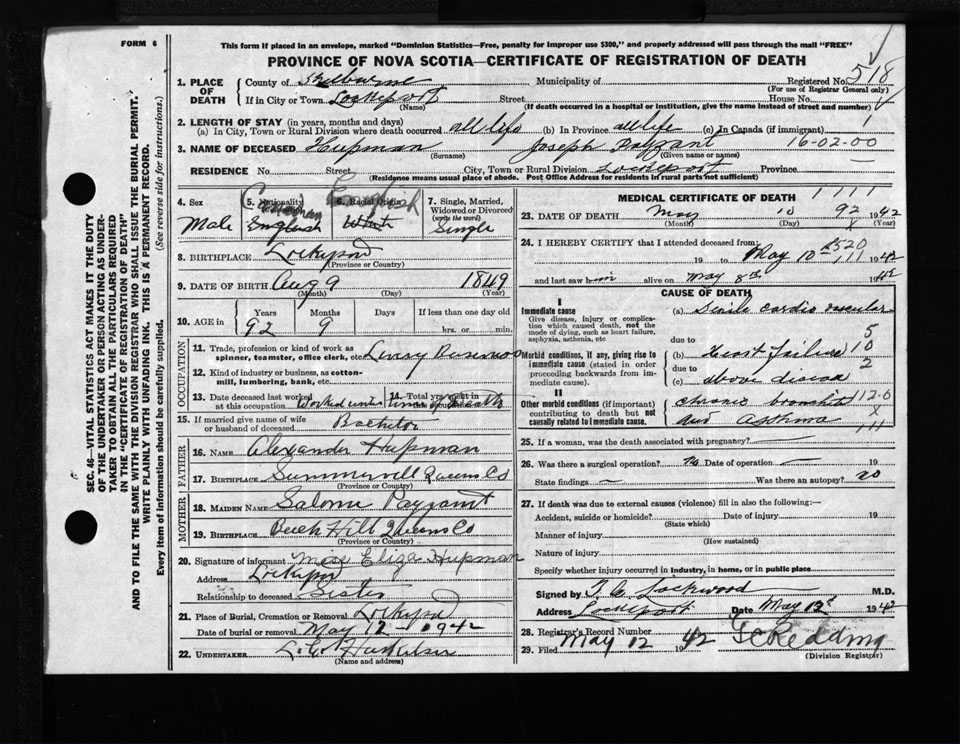 FORM 6
This form if placed in an envelope, marked "Dominion Statistics—Free, penalty for improper use $300," and properly addressed will pass through the mail "FREE"
PROVINCE OF NOVA SCOTIA—CERTIFICATE OF REGISTRATION OF DEATH
1. PLACE OF DEATH
County of Shelburne Municipality of Registered No. 518
(For use of Registrar General only)
If in City or Town Lockeport Street House No.
(Name) (If death occurred in a hospital or institution, give the name instead of street and number)
2. LENGTH OF STAY (in years, months and days)
(a) In City, Town or Rural Division where death occurred all life (b) In Province all life (c) In Canada (if immigrant)
3. NAME OF DECEASED Hupman Joseph Payzant 16-02-00
(Surname) (Given name or names)
RESIDENCE No. Street City, Town or Rural Division Lockeport Province
(Residence means usual place of abode. Post Office Address for residents in rural parts not sufficient)
4. Sex Male
5. Nationality English
6. Racial Origin White
7. Single, Married, Widowed or Divorced (write the word) Single
8. BIRTHPLACE Lockeport
(Province or Country)
9. DATE OF BIRTH Aug 9 1849
(Month) (Day) (Year)
10. AGE in Years Months Days If less than one day
92 9 hrs. or min.
OCCUPATION
11. Trade, profession or kind of work as spinner, teamster, office clerk, etc.
12. Kind of industry or business, as cotton-mill, lumbering, bank, etc.
13. Date deceased last worked at this occupation Worked until time of Death
14. Total years spent in this occupation
15. If married give name of wife or husband of deceased Bachelor
FATHER
16. NAME Alexander Hupman
17. BIRTHPLACE Summerville Queens Co
(Province or Country)
MOTHER
18. MAIDEN NAME Salome Payzant
19. BIRTHPLACE Beech Hill Queens Co
(Province or Country)
20. Signature of informant Miss Eliza Hupman
Address Lockeport
Relationship to deceased Sister
21. Place of Burial, Cremation or Removal Lockeport
Date of burial or removal May 12 - 1942
22. UNDERTAKER
(Name and address)
MEDICAL CERTIFICATE OF DEATH
1 1 1 1
23. DATE OF DEATH May 10 92 1942
(Month) (Day) (Year)
24. I HEREBY CERTIFY that I attended deceased from:
19 to May 10th 1942
and last saw him alive on May 8th 1942
CAUSE OF DEATH
I
Immediate cause
Give disease, injury or complication which caused death, not the mode of dying, such as heart failure, asphyxia, asthenia, etc
(a) Senile cardio vascular
due to
Morbid conditions, if any, giving rise to immediate cause (stated in order proceeding backwards from immediate cause).
(b) Heart failure
due to
(c) above disease
II
Other morbid conditions (if important) contributing to death but not causally related to immediate cause.
Chronic bronchitis
and Asthma
25. If a woman, was the death associated with pregnancy?
26. Was there a surgical operation? No Date of operation 19
State findings Was there an autopsy? no
27. If death was due to external causes (violence) fill in also the following:—
Accident, suicide or homicide? Date of injury 19
(State which)
Manner of injury
(How sustained)
Nature of injury
Specify whether injury occurred in industry, in home, or in public place
Signed by Lockwood M.D.
Address Lockeport Date May 12th 1942
28. Registrar's Record Number
29. Filed May 12 1942 Redding
(Division Registrar)
SEC. 46—VITAL STATISTICS ACT MAKES IT THE DUTY
OF THE UNDERTAKER OR PERSON ACTING AS UNDER-
TAKER TO OBTAIN ALL THE PARTICULARS REQUIRED
IN THE "CERTIFICATE OF REGISTRATION OF DEATH"
AND TO FILE THE SAME WITH THE DIVISION REGISTRAR WHO SHALL ISSUE THE BURIAL PERMIT.
WRITE PLAINLY WITH UNFADING INK. THIS IS A PERMANENT RECORD.
Every item of information should be carefully supplied. (See reverse side for instructions.)